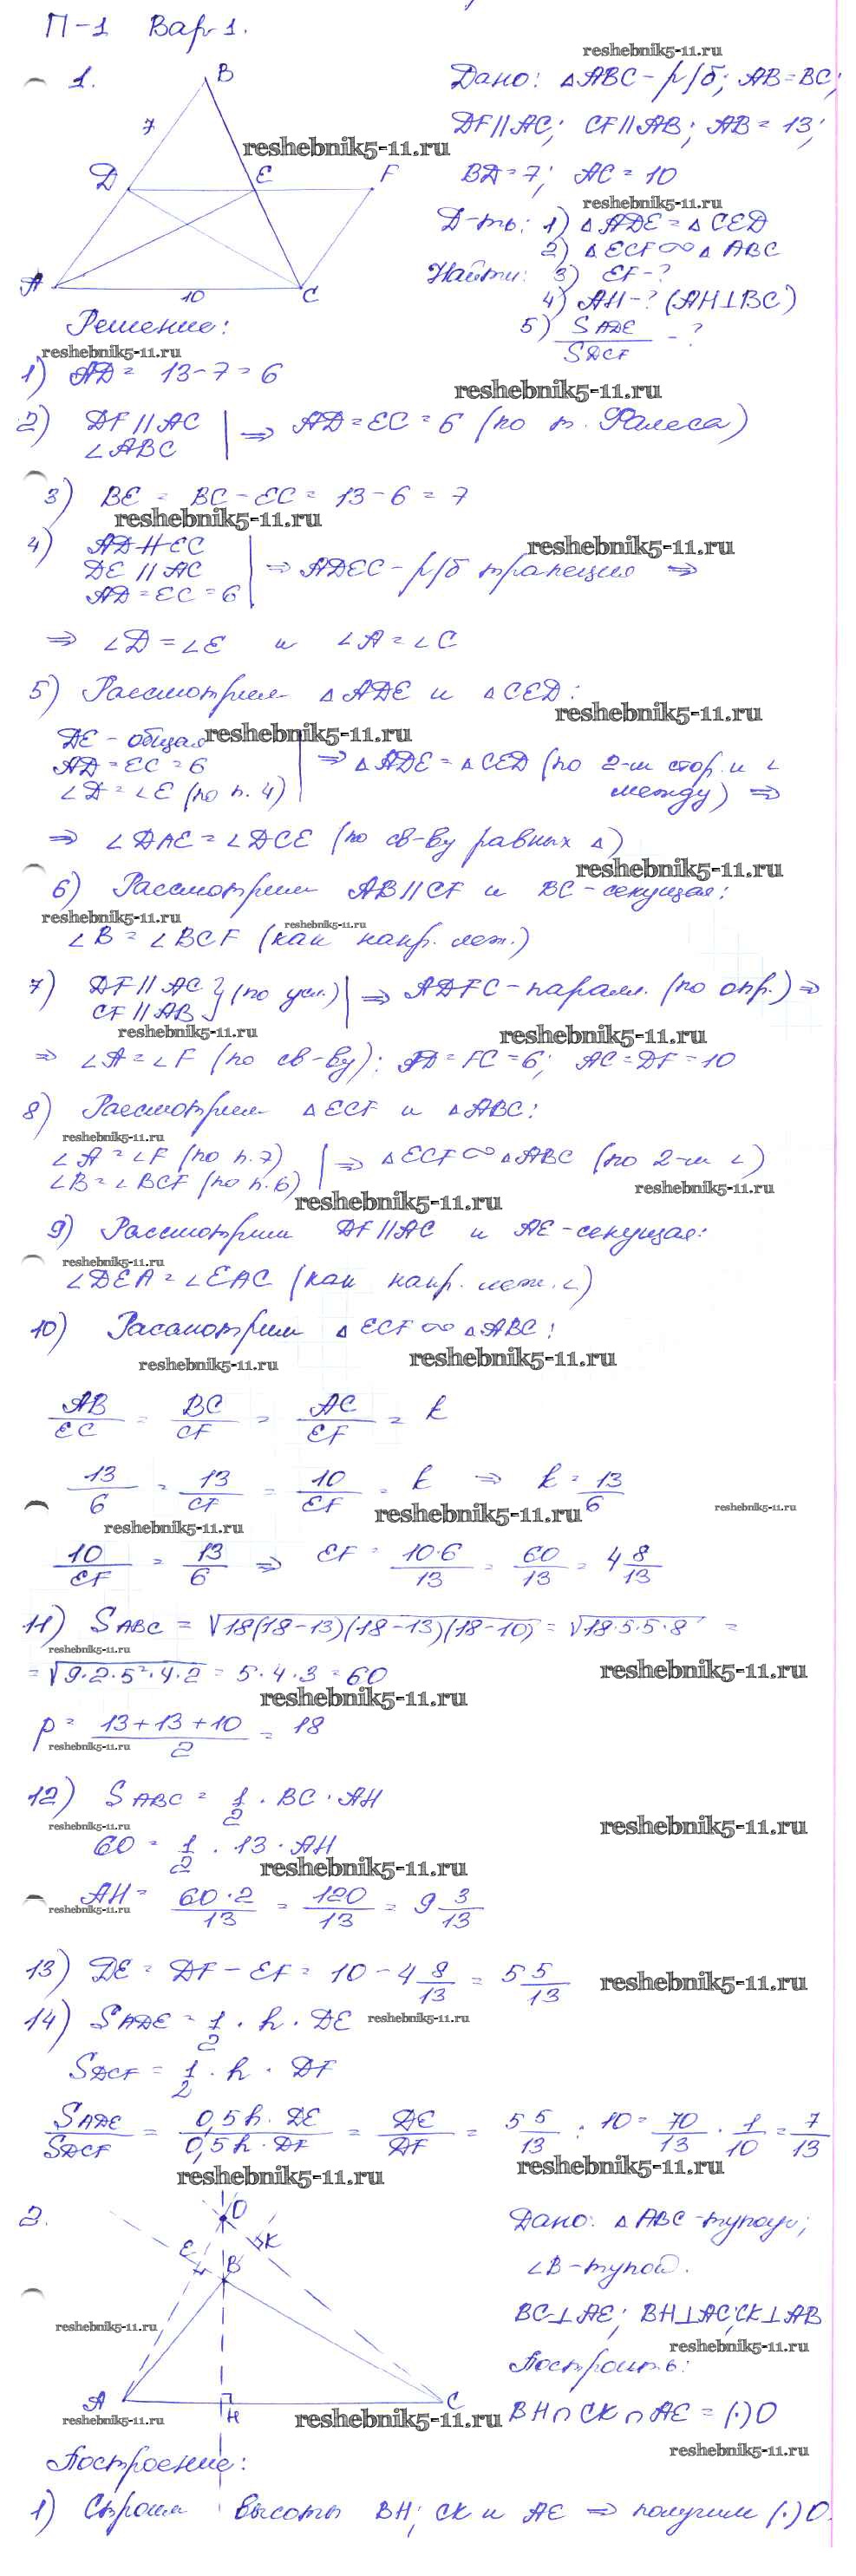 П-1 Вар 1.
reshebnik5-11.ru
1.
B
7
D
E
F
A
10
C
reshebnik5-11.ru
Дано: △ABC - р/б; AB=BC;
DF∥AC; CF∥AB; AB=13;
BD=7; AC=10
reshebnik5-11.ru
Д-ть: 1) △ADE=△CED
2) △ECF∞△ABC
Найти: 3) EF-?
4) AH-? (AH⊥BC)
5) S ADE / S DCF - ?
Решение:
reshebnik5-11.ru
1) AD = 13-7=6
reshebnik5-11.ru
2) DF∥AC
∠ABC | ⇒ AD=EC=6 (по т. Фалеса)
3) BE = BC-EC = 13-6=7
reshebnik5-11.ru
4) AD∦EC
reshebnik5-11.ru
DE∥AC | ⇒ ADEC - р/б трапеция ⇒
AD=EC=6
⇒ ∠D=∠E и ∠A=∠C
5) Рассмотрим △ADE и △CED:
reshebnik5-11.ru
DE - общая
reshebnik5-11.ru
AD=EC=6 | ⇒ △ADE=△CED (по 2-м стор. и ∠
∠D=∠E (по п. 4) между) ⇒
⇒ ∠DAE=∠DCE (по св-ву равных △)
reshebnik5-11.ru
6) Рассмотрим AB∥CF и BC-секущая:
reshebnik5-11.ru
reshebnik5-11.ru
∠B=∠BCF (как накр. леж.)
7) DF∥AC
CF∥AB } (по усл.) | ⇒ ADFC - паралл. (по опр.) ⇒
reshebnik5-11.ru
reshebnik5-11.ru
⇒ ∠A=∠F (по св-ву); AD=FC=6; AC=DF=10
8) Рассмотрим △ECF и △ABC:
reshebnik5-11.ru
∠A=∠F (по п.7) | ⇒ △ECF∞△ABC (по 2-м ∠)
∠B=∠BCF (по п.6)
reshebnik5-11.ru
reshebnik5-11.ru
9) Рассмотрим DF∥AC и AE-секущая:
reshebnik5-11.ru
∠DEA=∠EAC (как накр. леж. ∠)
10) Расамотрим △ECF∞△ABC:
reshebnik5-11.ru
reshebnik5-11.ru
AB/EC = BC/CF = AC/EF = k
13/6 = 13/CF = 10/EF = k ⇒ k = 13/6
reshebnik5-11.ru
reshebnik5-11.ru
reshebnik5-11.ru
10/EF = 13/6 ⇒ EF = 10·6/13 = 60/13 = 4 8/13
11) S ABC = √18(18-13)(18-13)(18-10) = √18·5·5·8 =
reshebnik5-11.ru
= √9·2·5²·4·2 = 5·4·3=60
reshebnik5-11.ru
reshebnik5-11.ru
p = 13+13+10 / 2 = 18
reshebnik5-11.ru
12) S ABC = 1/2 · BC · AH
reshebnik5-11.ru
reshebnik5-11.ru
60 = 1/2 · 13 · AH
reshebnik5-11.ru
AH = 60·2/13 = 120/13 = 9 3/13
reshebnik5-11.ru
13) DE = DF-EF = 10-4 8/13 = 5 5/13
reshebnik5-11.ru
14) S ADE = 1/2 · h · DE
reshebnik5-11.ru
S DCF = 1/2 · h · DF
S ADE / S DCF = 0,5h·DE / 0,5h·DF = DE/DF = 5 5/13 : 10 = 70/13 · 1/10 = 7/13
reshebnik5-11.ru
reshebnik5-11.ru
2.
O
E
K
B
A
H
C
reshebnik5-11.ru
Дано: △ABC - тупоуг;
∠B-тупой.
BC⊥AE; BH⊥AC; CK⊥AB
reshebnik5-11.ru
Построить:
BH∩CK∩AE = (·)O
reshebnik5-11.ru
reshebnik5-11.ru
reshebnik5-11.ru
Построение:
1) Строим высоты BH; CK и AE ⇒ получим (·)O.